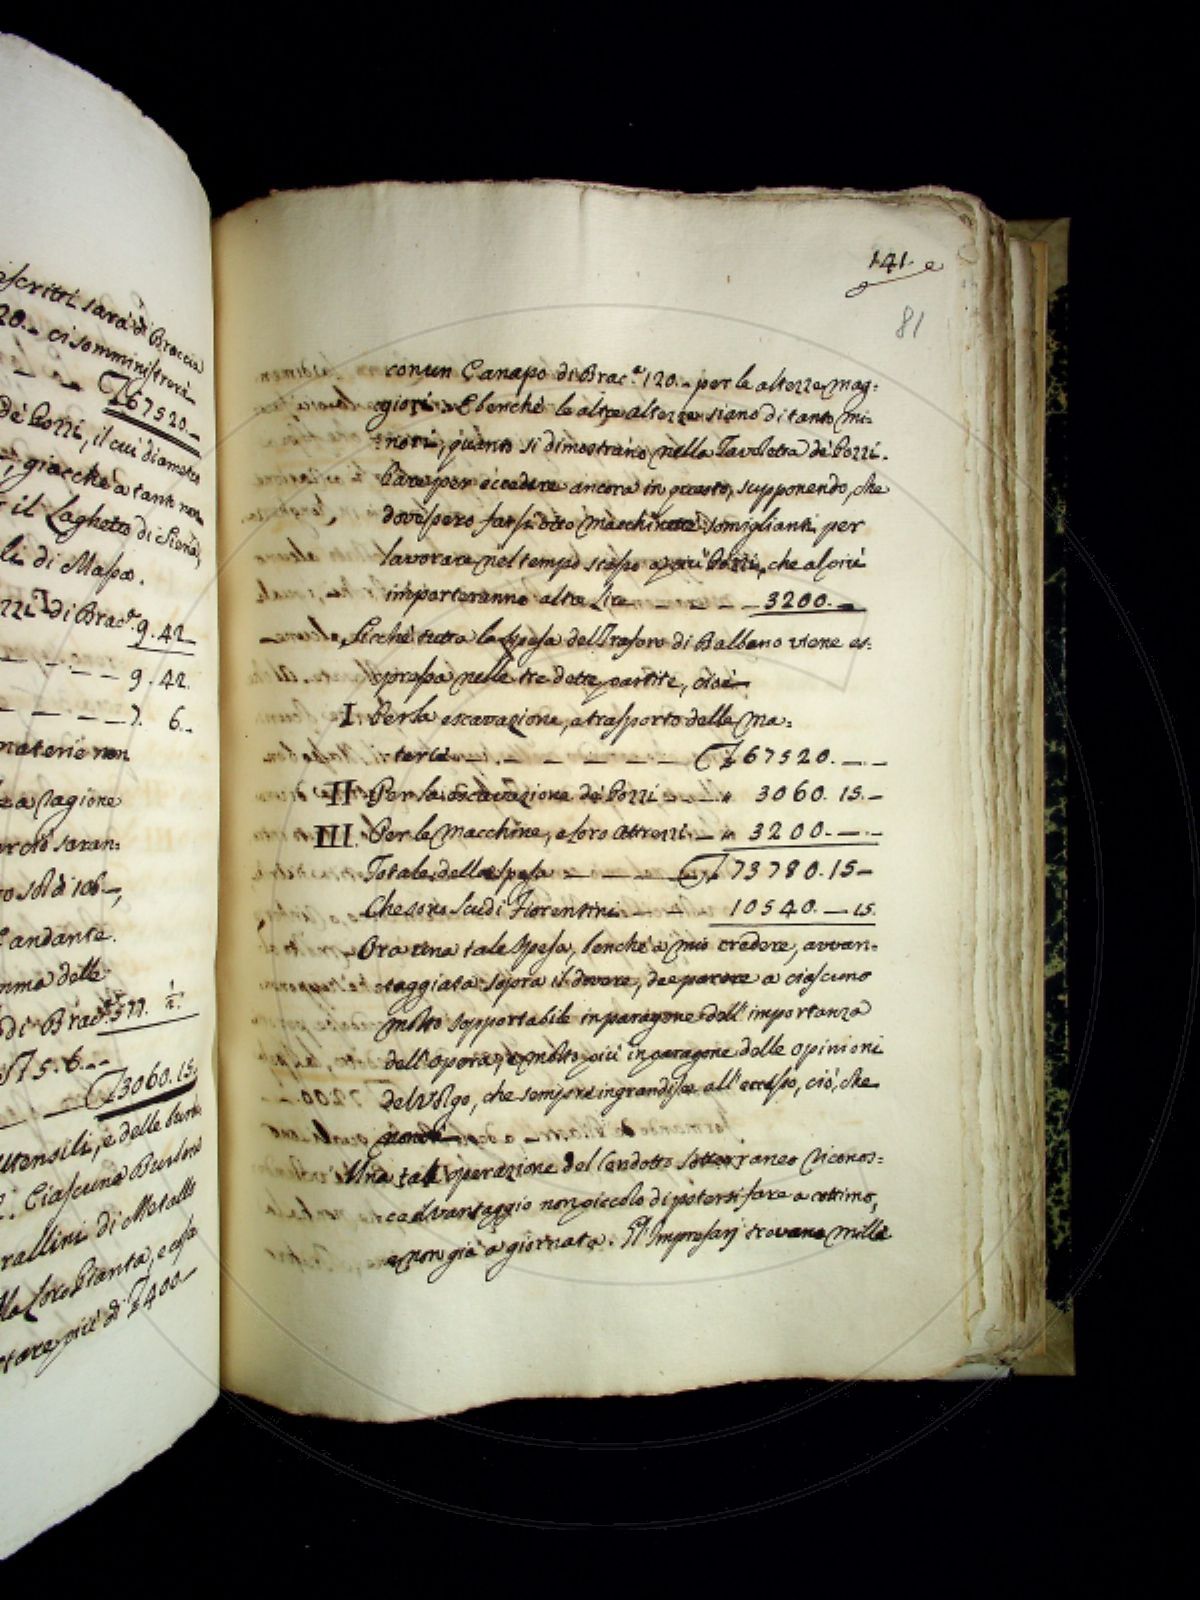 escritti sarà di Braccia
20.- ci somministrerà
₤67520.-
de' Pozzi, il cui diametro
giacchè a tanto
il Laghetto di Siena,
li di Massa.
di Brac.ª 9.42
9.42.
7. 6.-
materie non
a ragione
ciò saran:
soldi 106-,
andante.
mma delle
di Brac.ª 511. ½.
₤ 5.6.-
₤3060.15.
utensili, e delle
Ciascuna Burbera
rallini di Metallo
la loro Pianta, e cassa
tare più di ₤400-
141.
81
con un Canapo di Brac.ª 120.- per le altezze mag:
giori. E benchè le altre altezze siano di tanto mi:
nori, quanto si dimostrano nella Tavoletta de' Pozzi.
Pure per eccedere ancora in questo, supponendo, che
dovessero farsi otto macchine somiglianti per
lavorare nel tempo stesso a più Pozzi, che al più
importeranno altre Lire - - - 3200.-
Sicchè tutta la Spesa del Trasoro di Balbano viene es:
pressa nelle tre dette partite, cioè
I. Per la escavazione, e trasporto delle Ma:
terie - - - - - - ₤67520.--
II. Per la escavazione de' Pozzi - - " 3060.15.-
III. Per le Macchine, e loro Attrezzi - " 3200.--
Totale della spesa - - - - ₤73780.15-
Che sono Scudi Fiorentini - - 10540.-15.
Ora una tale Spesa, benchè a mio credere, avvan:
taggiata sopra il dovere, dee parere a ciascuno
molto sopportabile in paragone dell'importanza
dell'Opera, e molto più in paragone delle opinioni
del Volgo, che sempre ingrandisce all'eccesso, ciò, che
Una tale operazione del Condotto sotterraneo riconos:
ce advantaggio non piccolo di potersi fare a cottimo,
e non già a giornata. Gl'Impresarj trovano mille